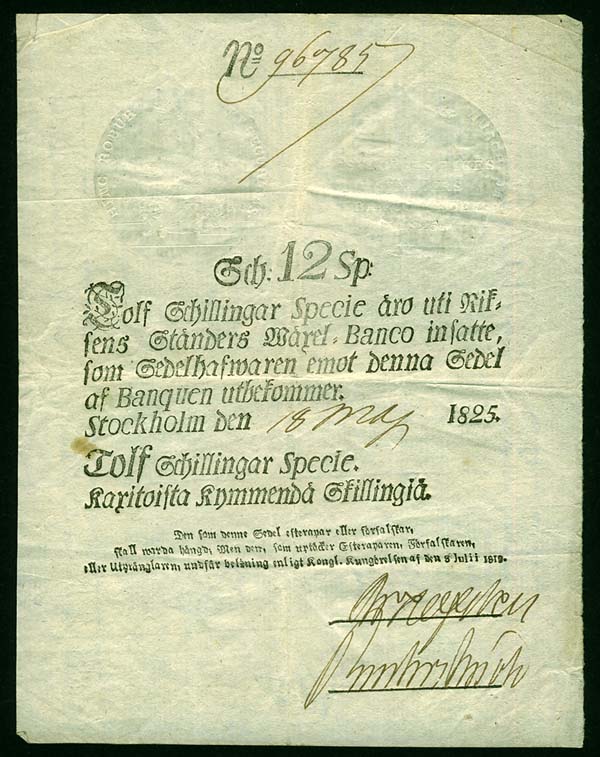 No 96785
HINC ROBUR
Sch: 12 Sp:
Tolf Schillingar Specie äro uti Rik-
sens Ständers Wäxel-Banco insatte,
som Sedelhafwaren emot denna Sedel
af Banquen utbekommer.
Stockholm den 18 May 1825.
Tolf Schillingar Specie.
Kaxitoista Kymmendä Skillingiä.
Den som denne Sedel efterapar eller förfalskar,
skall warda hängd; Men den, som uptäcker Efteraparen, Förfalskaren,
eller Utpränglaren, undfår belöning enligt Kongl. Kungörelsen af den 8 Julii 1818.